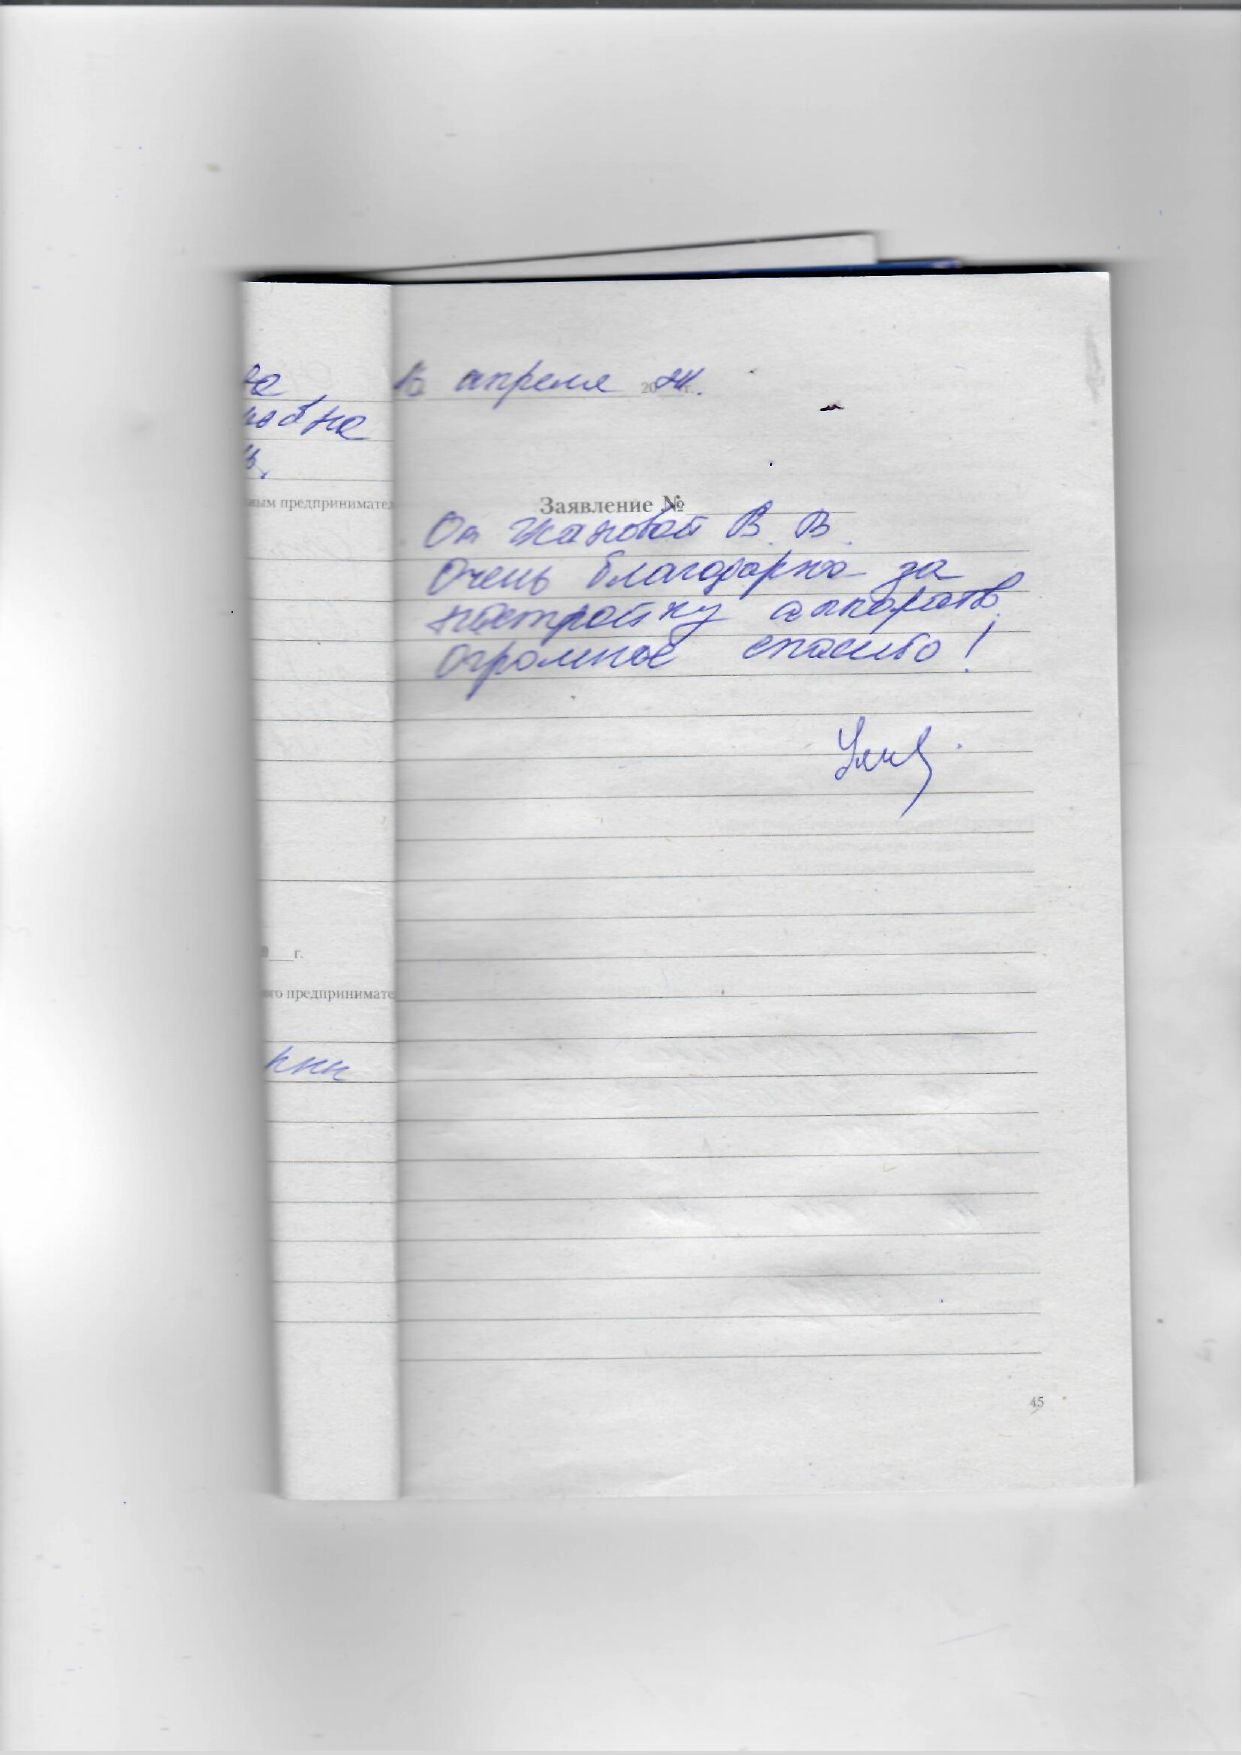 на
овна
в.
ным предпринимател
0___г.
ого предпринимате
кнн
апреля 20 г.
Заявление №
От Жановой В. В.
Очень благодарна за
настройку аппарата
огромное спасибо!
45